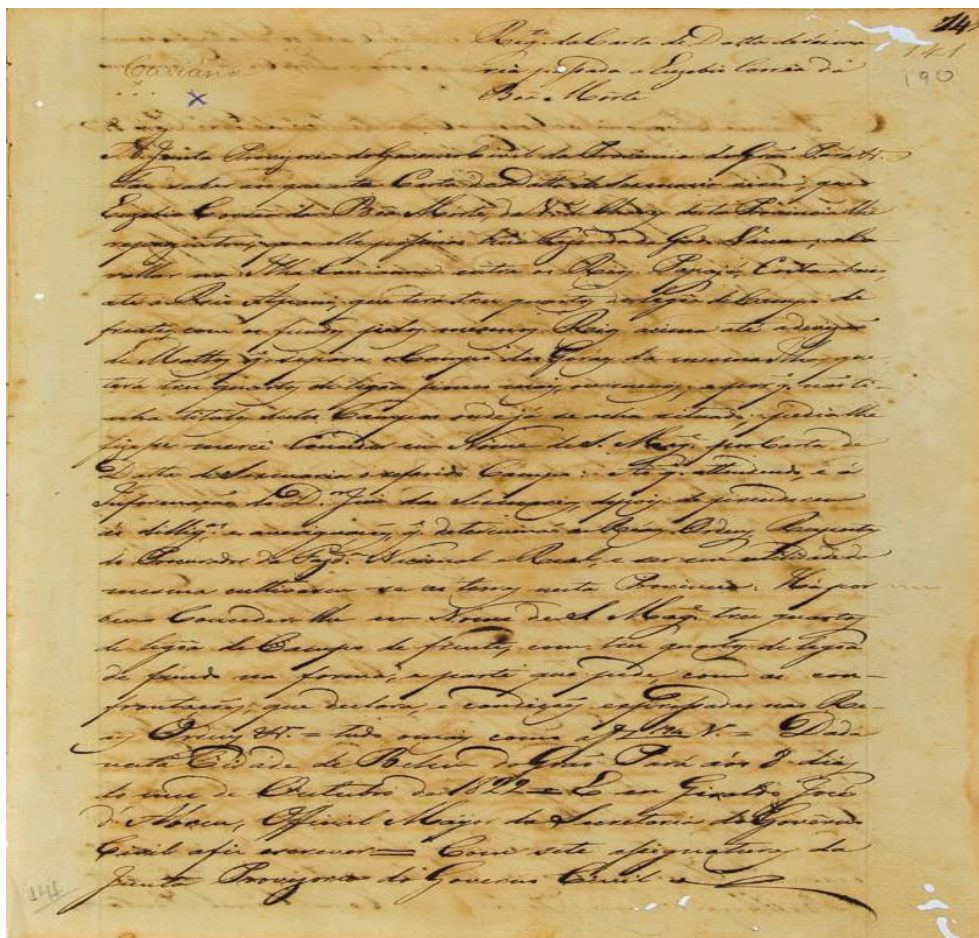 14
141
190
Caviána
Reg.to da Carta de Datta de Sesma
ria passada a Euzebio Corrêa da
Boa Morte
A Junta Provizoria do Governo Civil da Provincia do Grão Pará &.
Faz saber aos que esta Carta de Data de Sesmaria virem, que
Euzebio Corrêa da Boa Morte, de desta Provincia lhe
reprezentou, que elle possuia huã Fazenda de Gado Vacum, e Ca
vallar na Ilha Caviana entre os Rios
até o Rio Apani, que terá tres quartos de legoa de Campo de
frente, com os fundos pelos mesmos Rios acima até a divizão
de Mattos q. separa o Campo das da mesma Ilha, que
terá tres quartos de legoa pouco mais, ou menos, e por q. não ti-
nha titulo destes Campos onde já se acha situado, pedia lhe
fizesse mercê Conceder em Nome de S. Mag.e por Carta de
Datta de Sesmaria o referido Campo: Ao q. attendendo, e á
Informação do D.or Juiz das Sesmarias, depois de proceder
ás dillig.as e averiguações, q. determinão as Reaes Ordens, Resposta
do Procurador da Faz.da Nacional e Real, e ser em utilidade da
mesma cultivarem se as terras nesta Provincia: Há por
bem Conceder lhe em Nome de S. Mag.e tres quartos
de legoa de Campo de frente, com tres quartos de legoa
de fundo na forma, e parte que pede, com as con-
frontações, que declara, e condições expressadas nas Re-
aes Ordens &. = tudo o mais como a f
N.o = Dada
nesta Cidade de Belem do Grão Pará aos 8 dias
do mez de Outubro de 1822 = E eu Giraldo José
d'Abreu, Official Mayor da Secretaria do Governo
Civil a fiz escrever = Com sete assignaturas da
Junta Provizoria do Governo Civil =
141